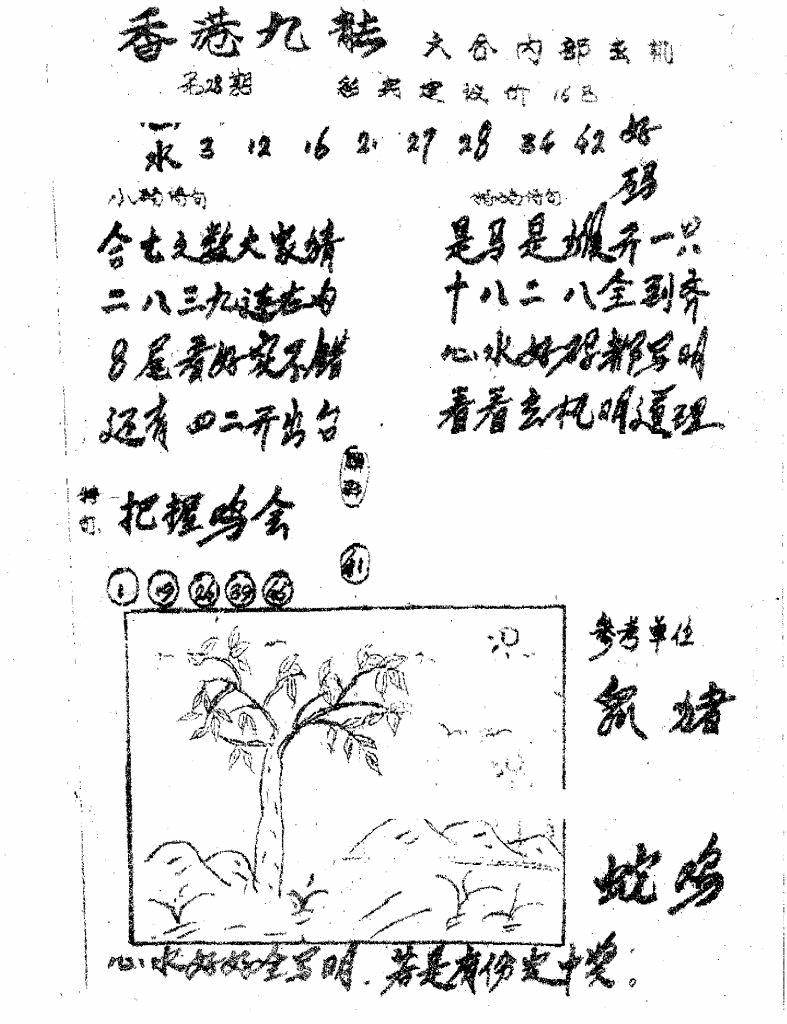 香港九龙 六合内部玄机
第28期 彩
心水 3 12 16 21 27 28 34 42 好码
合七之数大家猜 是马是猴开一只
二八三九连左右 十八二八全到齐
8尾看好实不错 心水好码都写明
还有四二开出台 看看玄机明道理
特句
把握鸡会
41
1 19 24 39
参考单位
鼠 猪
蛇 鸡
心水好好全写明.若是有份定中奖。